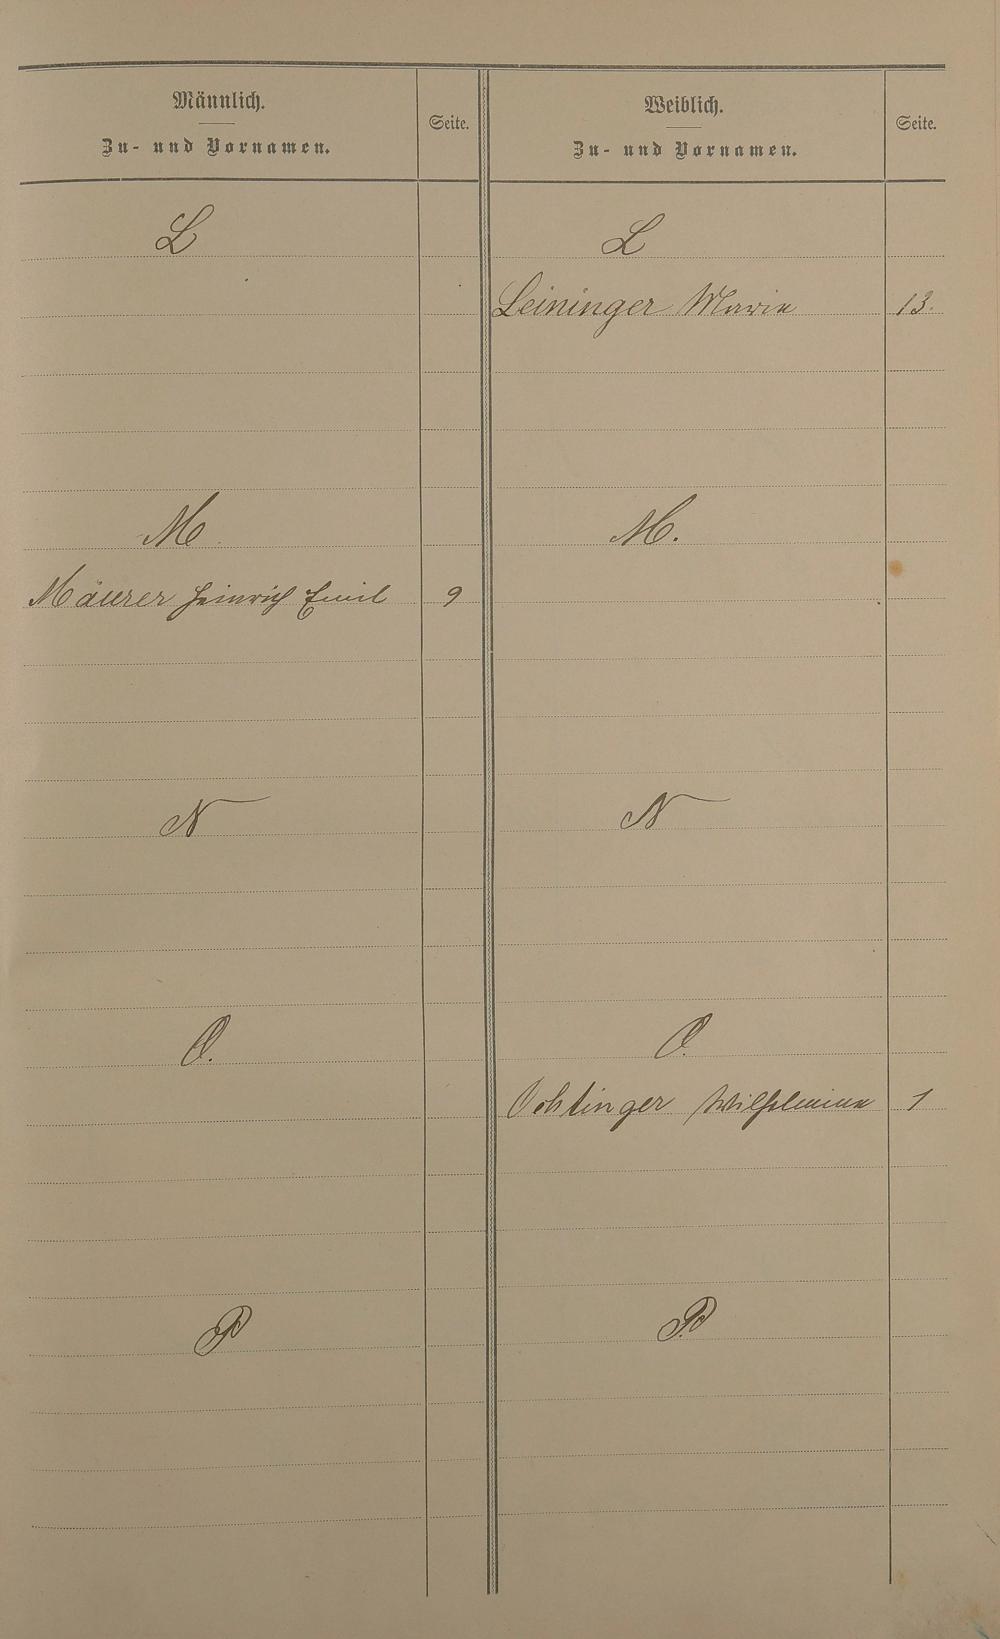 Männlich.
Zu- und Vornamen.
Seite.
Weiblich.
Zu- und Vornamen.
Seite.
L
L
Leininger Marie 13.
M
M.
Mäurer Heinrich Emil 9
N
N
O.
O.
Wilhelmine 1
P
P.